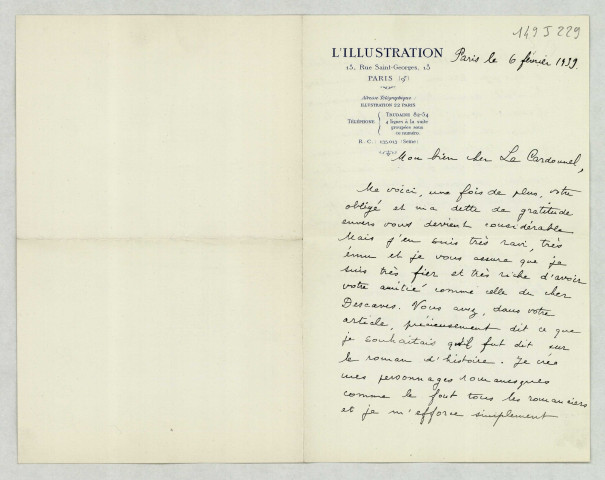 149 J 229
L'ILLUSTRATION
13, Rue Saint-Georges, 13
PARIS (9e)
Paris le 6 février 1939.
Adresse Télégraphique :
ILLUSTRATION 22 PARIS
TÉLÉPHONE { TRUDAINE 82-54
4 lignes à la suite
groupées sous
ce numéro.
R. C. : 133.013 (Seine)
Mon bien cher Le Cardonnel,
Me voici, une fois de plus, votre
obligé et ma dette de gratitude
envers vous devient considérable
Mais j'en suis très ravi, très
ému et je vous assure que je
suis très fier et très riche d'avoir
votre amitié comme celle du cher
Descaves. Vous avez, dans votre
article, précieusement dit ce que
je souhaitais qu'il fut dit sur
le roman d'histoire. Je crée
mes personnages romanesques
comme le font tous les romanciers
et je m'efforce simplement